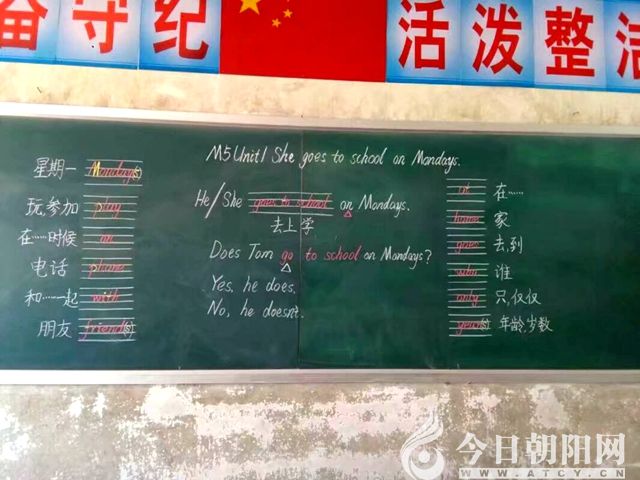 奋守纪
活泼整洁
M5 Unit1 She goes to school on Mondays.
星期一 Monday(s)
玩,参加 play
在……时候 on
电话 phone
和……一起 with
朋友 friend(s)
He/She goes to school on Mondays.
去上学
Does Tom go to school on Mondays?
Yes, he does.
No, he doesn't.
at 在……
home 家
goes 去,到
who 谁
only 只,仅仅
year(s) 年龄,岁数
今日朝阳网
WWW.ATCY.CN